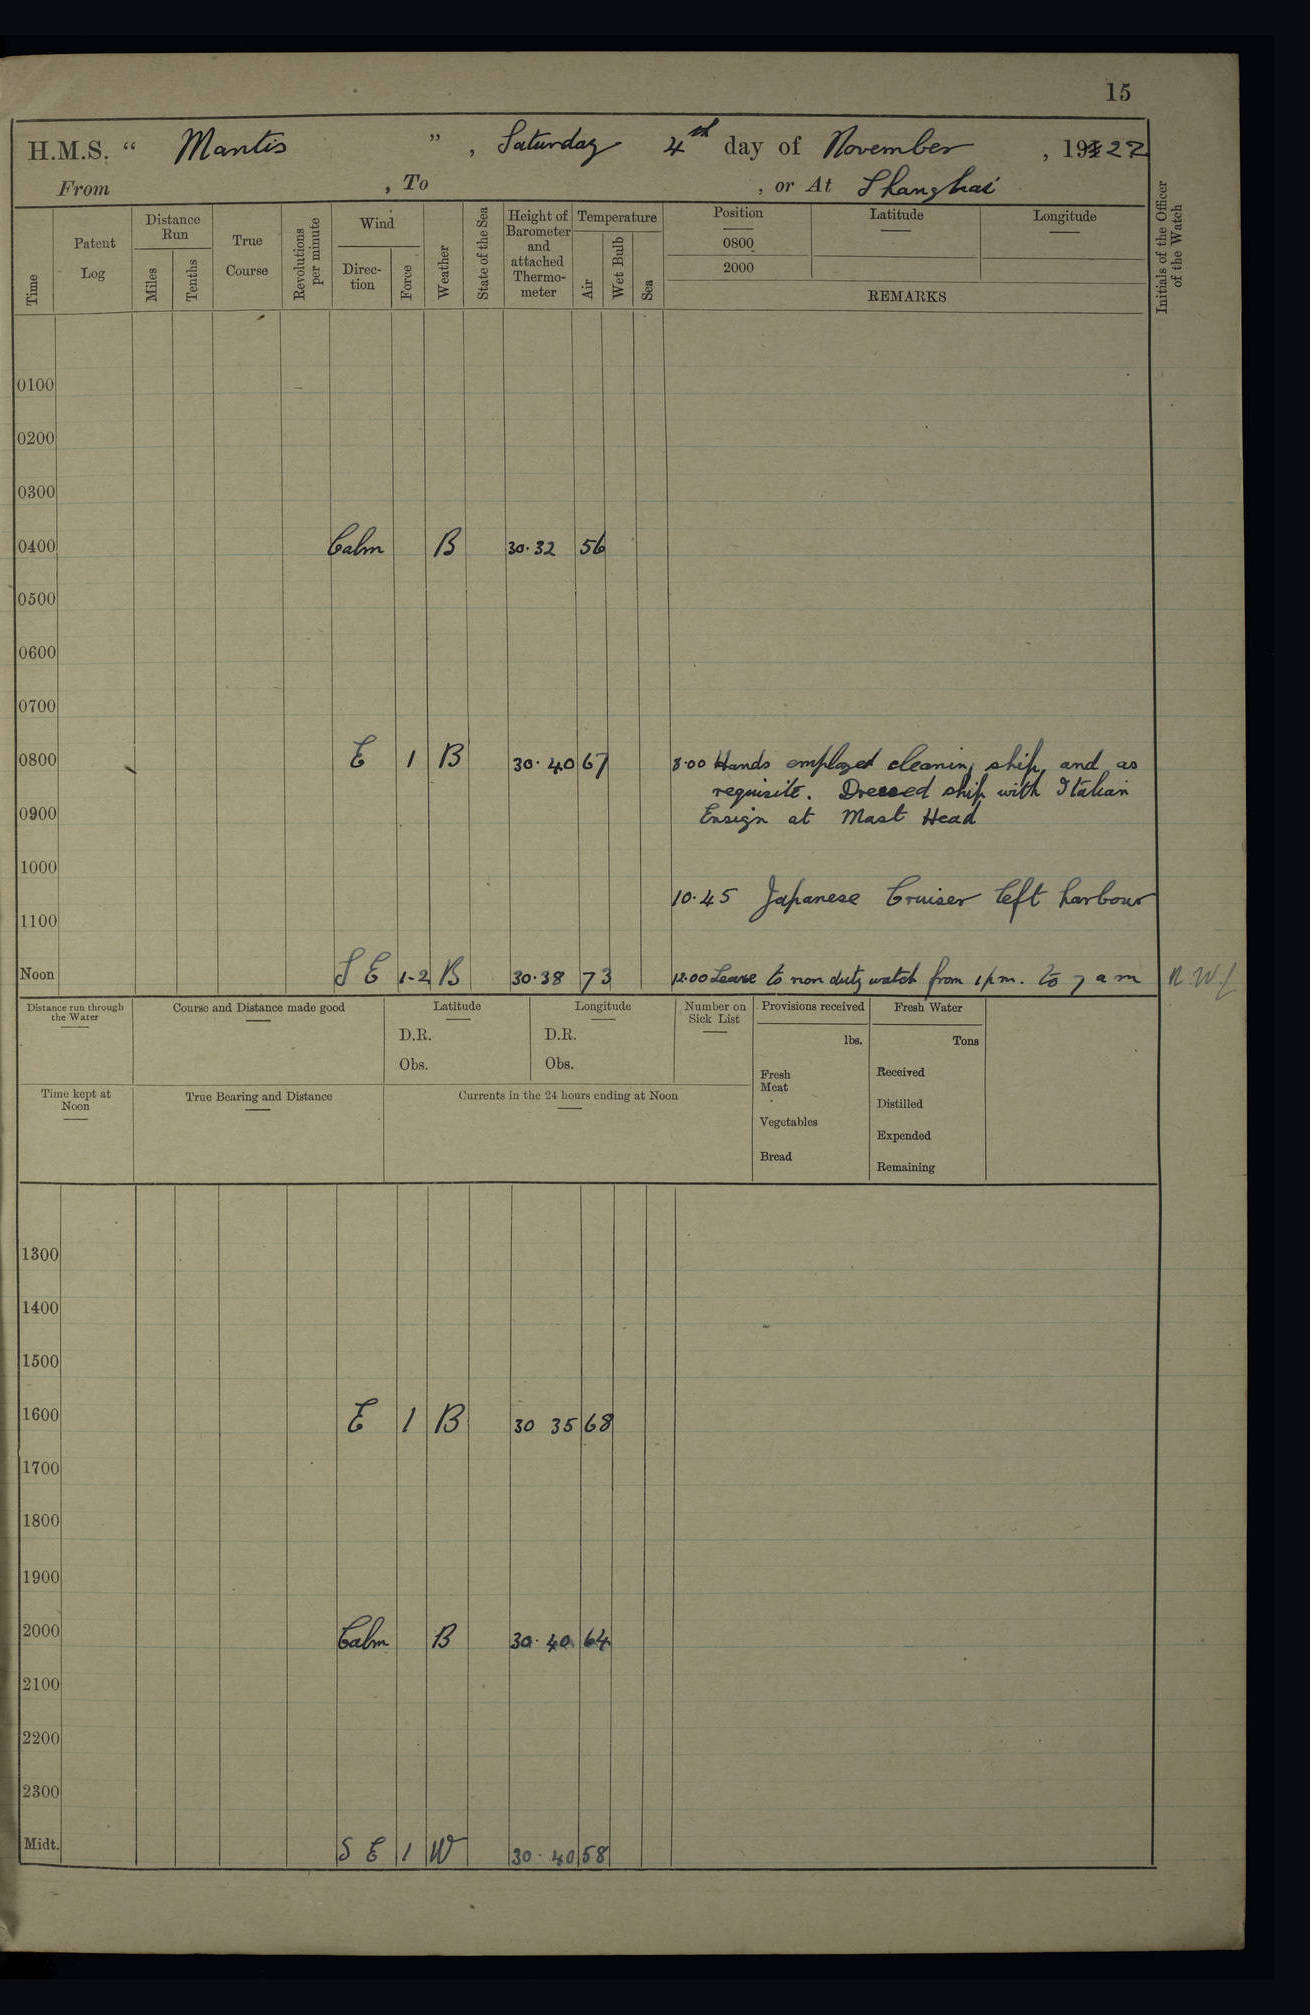 15
H.M.S. “ Mantis ” , Saturday 4th day of November , 1922
From , To , or At Shanghai
Time
Patent Log
Distance Run
Miles
Tenths
True Course
Revolutions per minute
Wind
Direction
Force
Weather
State of the Sea
Height of Barometer and attached Thermometer
Temperature
Air
Wet Bulb
Sea
Position
0800
2000
Latitude
Longitude
REMARKS
Initials of the Officer of the Watch
0100
0200
0300
0400 Calm B 30.32 56
0500
0600
0700
0800 E 1 B 30.40 67 8.00 Hands employed cleaning ship, and as
requisite. Dressed ship with Italian
0900 Ensign at Mast Head
1000
10.45 Japanese Cruiser left harbour
1100
Noon S E 1-2 B 30.38 73 12.00 Leave to non duty watch from 1 p.m. to 7 a m
Distance run through the Water
Course and Distance made good
Latitude
D.R.
Obs.
Longitude
D.R.
Obs.
Number on Sick List
Provisions received
lbs.
Fresh Meat
Vegetables
Bread
Fresh Water
Tons
Received
Distilled
Expended
Remaining
Time kept at Noon
True Bearing and Distance
Currents in the 24 hours ending at Noon
1300
1400
1500
1600 E 1 B 30 35 68
1700
1800
1900
2000 Calm B 30.40 64
2100
2200
2300
Midt. S E 1 W 30.40 58